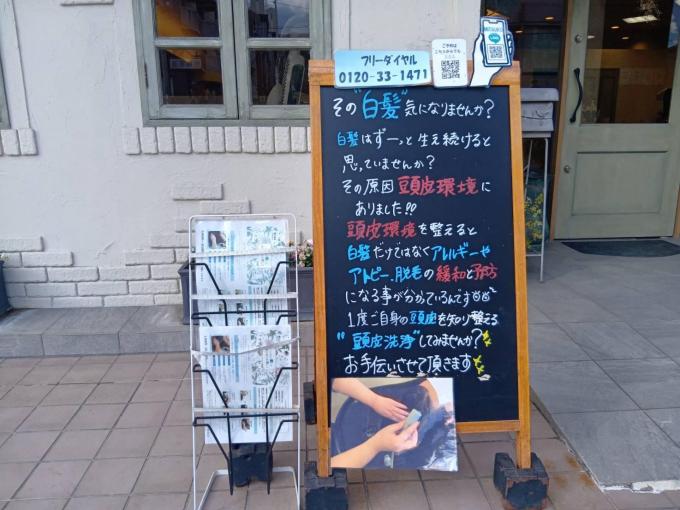 フリーダイヤル
0120-33-1471
ご予約は
こちらからでも
その"白髪"気になりませんか?
白髪はずーっと生え続けると
思っていませんか?
その原因頭皮環境に
ありました!!
頭皮環境を整えると
白髪だけではなくアレルギーや
アトピー、脱毛の緩和と予防
になる事が分かっているんです
1度ご自身の頭皮を知り整える
"頭皮洗浄"してみませんか?
お手伝いさせて頂きます